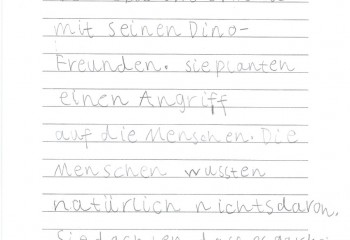 mit seinen Dino-
Freunden. sieplanten
einen Angriff
auf die Menschen. Die
Menschen wussten
natürlich nichtsdavon,
Sie dachten, dass es